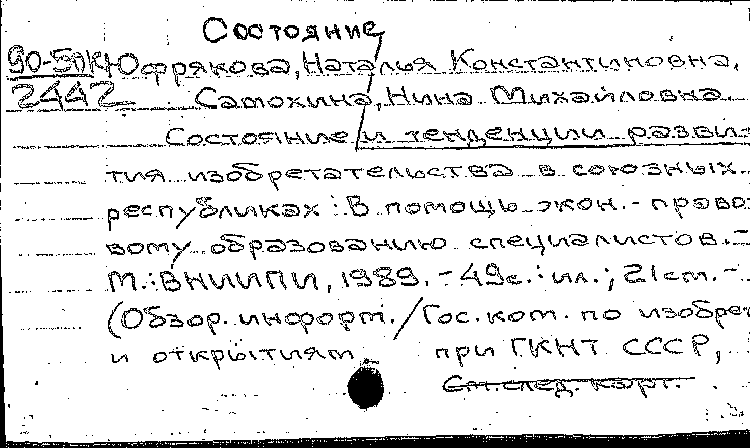 Состояние
90-50К Юфрякова, Наталья Константиновна,
2442 Самохина, Нина Михайловна.
Состояние и тенденции разви-
тия изобретательства в союзных
республиках : В помощь экон. - право-
вому образованию специалистов. -
М. : ВНИИПИ, 1989. - 49с. : ил. ; 21см. -
(Обзор. информ. / Гос. ком. по изобрет.
и открытиям при ГКНТ СССР,
См. след. карт.